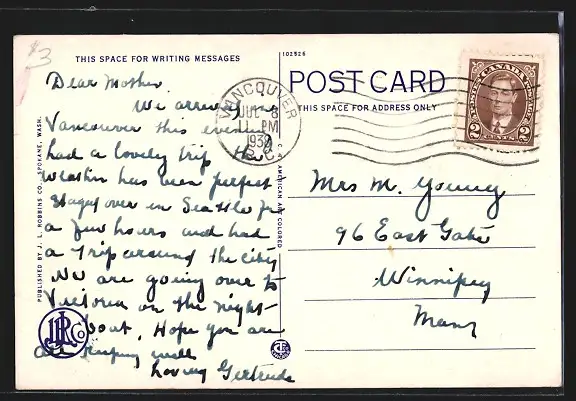 $3
THIS SPACE FOR WRITING MESSAGES
Dear Mother.
We arrived in
Vancouver this evening
had a lovely trip
the
weather has been perfect
stayed over in Seattle for
a few hours and had
a trip around the city
We are going over to
Victoria on the night-
boat. Hope you are
all keeping well
Loving Gertrude
PUBLISHED BY J. L. ROBBINS CO., SPOKANE, WASH.
JLR Co
102526
POST CARD
THIS SPACE FOR ADDRESS ONLY
VANCOUVER
JUL 8
11 PM
1939
B.C.
CANADA
2 2
AMERICAN ART COLORED
Mrs M. Young
96 East Gate
Winnipeg
Man